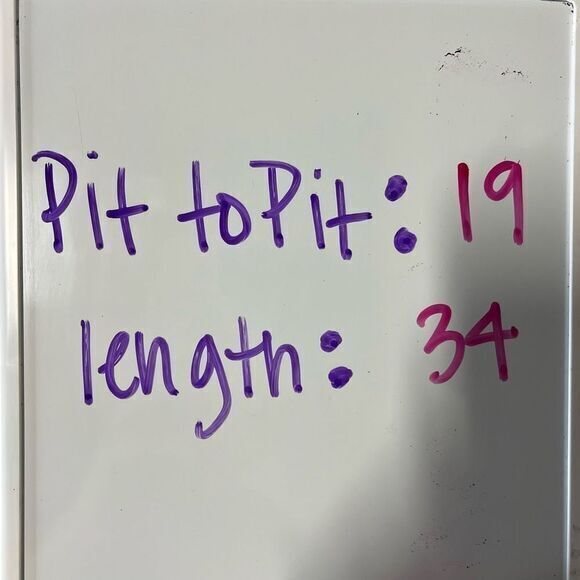 Pit to Pit: 19
length: 34